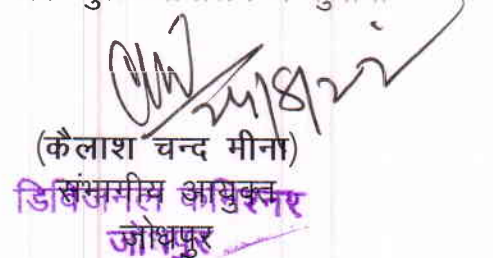 24/8/22
(कैलाश चन्द मीना)
संभागीय आयुक्त
डिविजनल कमिश्नर
जोधपुर
जोधपुर